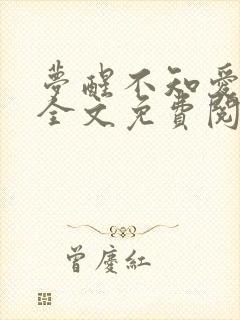 夢醒不知愛
全文免費閱
曾慶紅